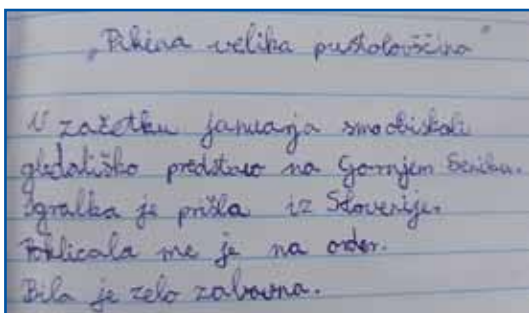 „Pikina velika pustolovščina"
V začetku januarja smo obiskali
gledališko predstavo na Gornjem Seniku.
Igralka je prišla iz Slovenije.
Poklicala me je na oder.
Bila je zelo zabavna.